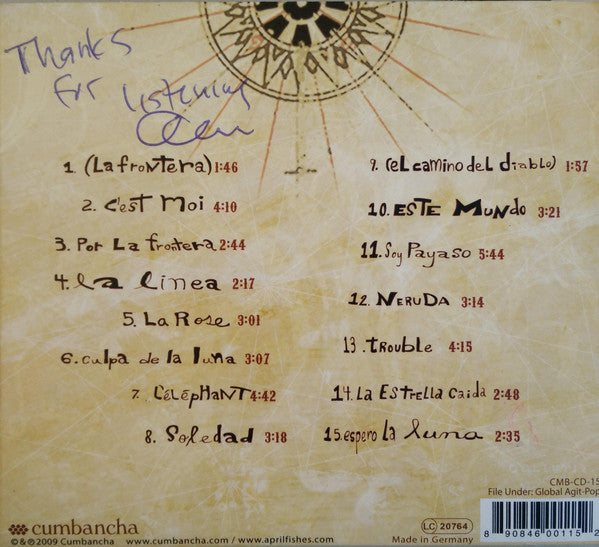 Thanks
for listening
1. (La frontera) 1:46
2. C'est Moi 4:10
3. Por La frontera 2:44
4. La Linea 2:17
5. La Rose 3:01
6. culpa de la luna 3:07
7. L'éléphant 4:42
8. Soledad 3:18
9. (el camino del diablo) 1:57
10. ESTE MUNDO 3:21
11. Soy Payaso 5:44
12. NERUDA 3:14
13. trouble 4:15
14. La Estrella Caida 2:48
15. espero La luna 2:35
CMB-CD-15
File Under: Global Agit-Pop
8 90846 00115 2
cumbancha
©&℗2009 Cumbancha www.cumbancha.com / www.aprilfishes.com
LC 20764
Made in Germany